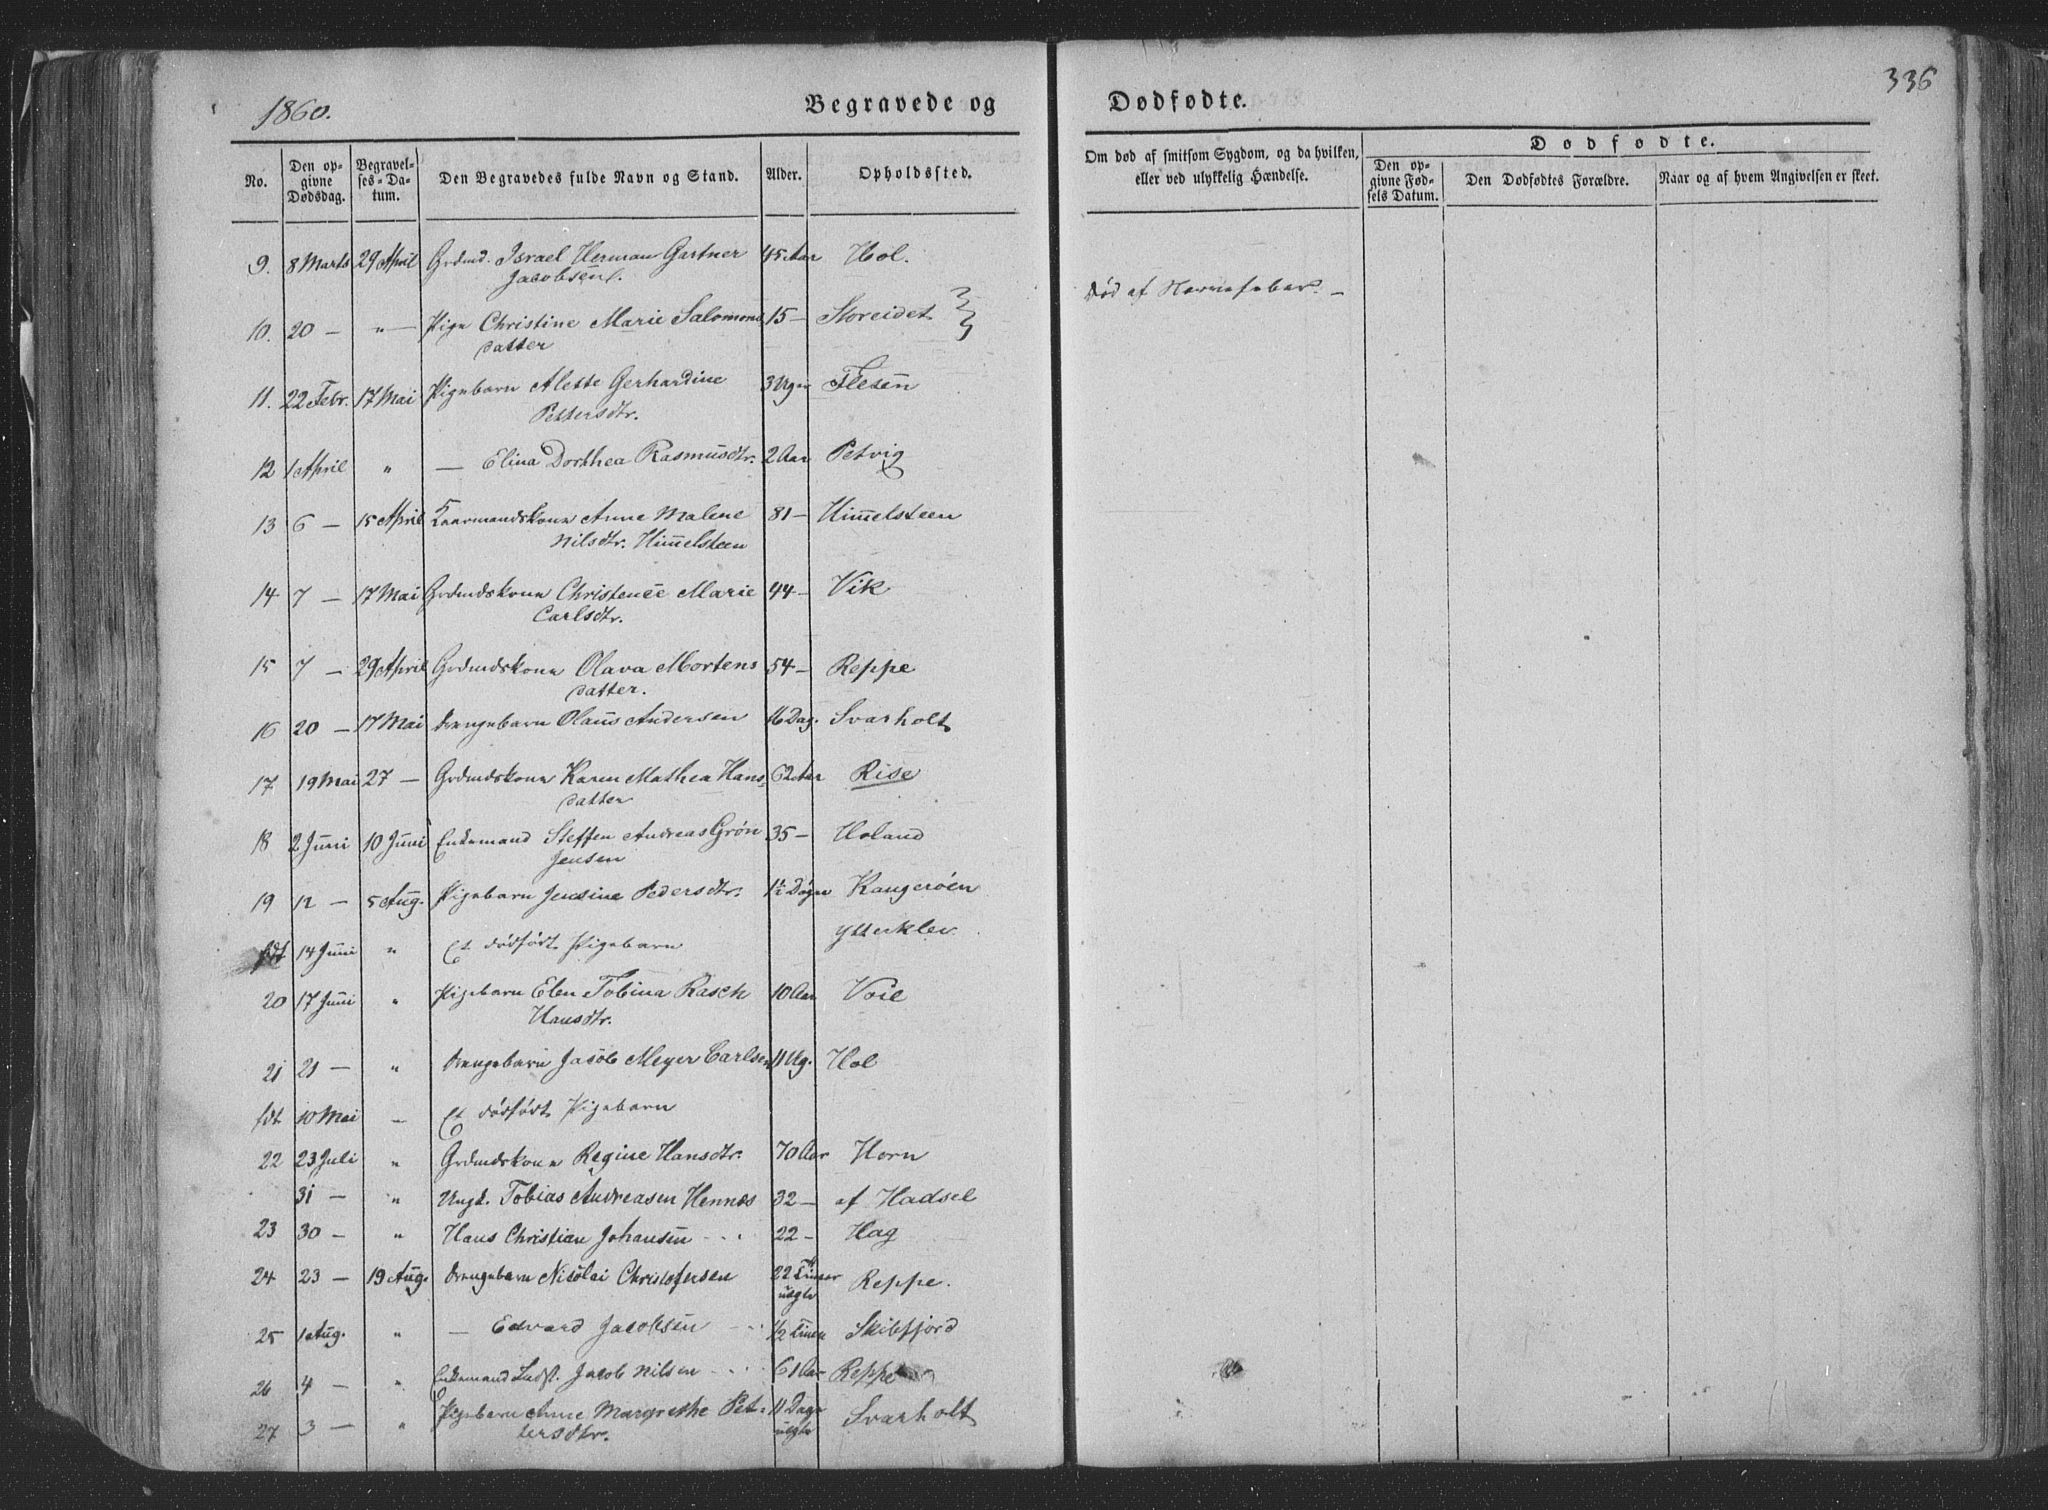 336
1860.
Begravede og Dødfødte.
No. | Den opgivne Dødsdag. | Begravelses-Datum. | Den Begravedes fulde Navn og Stand. | Alder. | Opholdssted. | Om død af smitsom Sygdom, og da hvilken, eller ved ulykkelig Hændelse. | Dødfødte. | Den opgivne Fødsels Datum. | Den Dødfødtes Forældre. | Naar og af hvem Angivelsen er skeet.
9. 8 Marts 29 April Grdmd. Israel Herman Gartner 45 Aar Hol.
Jacobsen.
Død af Nervefeber. –
10. 20 – " – Pige Christine Marie Salomons 15 – Storeidet
datter
11. 22 Febr. 17 Mai Pigebarn Alette Gerhardine 3 Uger Flesen
Pettersdtr.
12 1 April " – Elina Dorthea Rasmusdtr. 2 Aar Petvig
13 6 – 15 April Kaarmandskone Anne Malene 81 – Himelsteen
Nilsdtr. Himelsteen
14 7 – 17 Mai Grdmdskone Christence Marie 44 – Vik
Carlsdtr.
15 7 – 29 April Grdmdskone Olava Mortens 54 – Reppe
datter.
16 20 – 17 Mai Drengebarn Olaus Andersen 16 Dag. Svarholt
17 19 Mai 27 – Grdmdskone Karen Mathea Hans 62 Aar Rise
datter
18 2 Juni 10 Juni Enkemand Steffen Andreas Grøn 35 – Holand
Jensen
19 12 – 5 Aug. Pigebarn Jensine Pedersdtr. 1½ Døgn Kangerøen
fdt 14 Juni " Et dødfødt Pigebarn Ytterklev
20 17 Juni " Pigebarn Elen Tobina Rasch 10 Aar Voie
Hansdtr.
21 21 – " Drengebarn Jacob Meyer Carlsen 11 Ug. Hol
fdt. 10 Mai – Et dødfødt Pigebarn
22 23 Juli " Grdmdskone Regine Hansdtr. 70 Aar Horn
31 – " Ungk. Tobias Andreasen Hennes 32 – af Hadsel
23 30 – " Hans Christian Johansen 22 – Hag
24 23 – 19 Aug. Drengebarn Nicolai Christofersen 22 Timer Reppe.
25 1 Aug. " – Edvard Jacobsen ½ Time Skibfjord
26 4 – " Enkemand Jacob Nilsen 61 Aar Reppe
27 3 – " Pigebarn Anne Margrethe Pet- 11 Dage Svarholt
tersdtr.